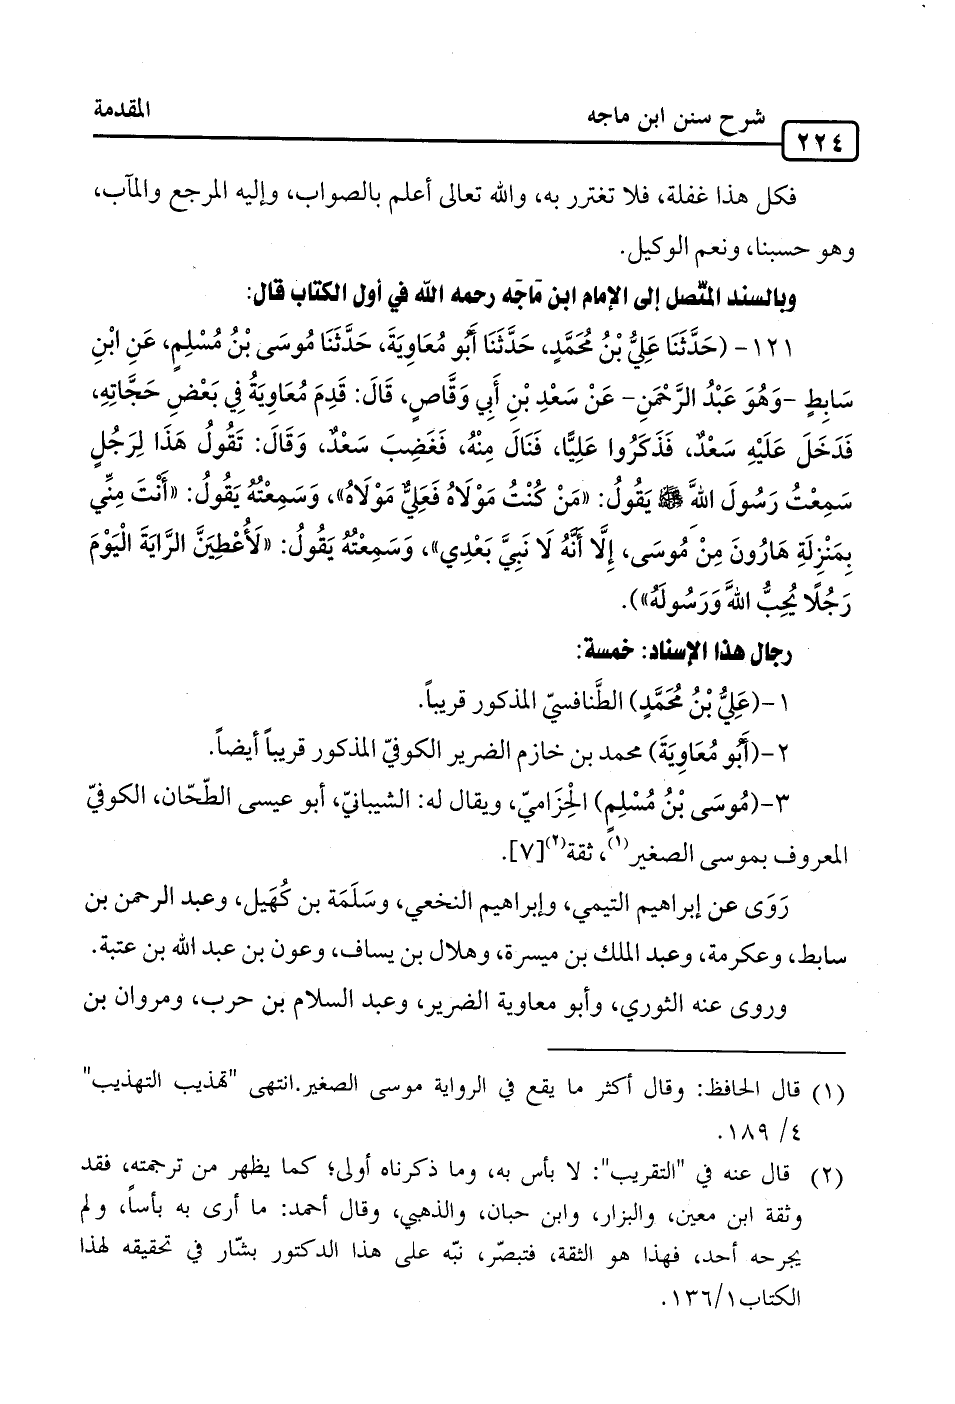 شرح سنن ابن ماجه
المقدمة
٢٢٤
فكل هذا غفلة، فلا تغترر به، والله تعالى أعلم بالصواب، وإليه المرجع والمآب،
وهو حسبنا، ونعم الوكيل.
وبالسند المتّصل إلى الإمام ابن مَاجَه رحمه الله في أول الكتاب قال:
١٢١- (حَدَّثَنَا عَلِيُّ بْنُ مُحَمَّدٍ، حَدَّثَنَا أَبُو مُعَاوِيَةَ، حَدَّثَنَا مُوسَى بْنُ مُسْلِمٍ، عَنِ ابْنِ
سَابِطٍ -وَهُوَ عَبْدُ الرَّحْمَنِ- عَنْ سَعْدِ بْنِ أَبِي وَقَّاصٍ، قَالَ: قَدِمَ مُعَاوِيَةُ فِي بَعْضِ حَجَّاتِهِ،
فَدَخَلَ عَلَيْهِ سَعْدٌ، فَذَكَرُوا عَلِيًّا، فَنَالَ مِنْهُ، فَغَضِبَ سَعْدٌ، وَقَالَ: تَقُولُ هَذَا لِرَجُلٍ
سَمِعْتُ رَسُولَ اللهَِّ ﷺ يَقُولُ: «مَنْ كُنْتُ مَوْلَاهُ فَعَلِيٌّ مَوْلَاهُ»، وَسَمِعْتُهُ يَقُولُ: «أَنْتَ مِنِّي
بِمَنْزِلَةِ هَارُونَ مِنْ مُوسَى، إِلَّا أَنَّهُ لَا نَبِيَّ بَعْدِي»، وَسَمِعْتُهُ يَقُولُ: «لَأُعْطِيَنَّ الرَّايَةَ الْيَوْمَ
رَجُلًا يُحِبُّ اللهََّ وَرَسُولَهُ»).
رجال هذا الإسناد: خمسة:
١-(عَلِيُّ بْنُ مُحَمَّدٍ) الطَّنافسيّ المذكور قريباً.
٢-(أَبُو مُعَاوِيَةَ) محمد بن خازم الضرير الكوفيّ المذكور قريباً أيضاً.
٣-(مُوسَى بْنُ مُسْلِمٍ) الحِزَاميّ، ويقال له: الشيبانيّ، أبو عيسى الطّحّان، الكوفيّ
المعروف بموسى الصغير(١)، ثقة(٢)[٧].
رَوَى عن إبراهيم التيمي، وإبراهيم النخعي، وسَلَمَة بن كُهَيل، وعبد الرحمن بن
سابط، وعكرمة، وعبد الملك بن ميسرة، وهلال بن يساف، وعون بن عبد الله بن عتبة.
وروى عنه الثوري، وأبو معاوية الضرير، وعبد السلام بن حرب، ومروان بن
(١) قال الحافظ: وقال أكثر ما يقع في الرواية موسى الصغير.انتهى "تهذيب التهذيب"
٤/ ١٨٩.
(٢) قال عنه في "التقريب": لا بأس به، وما ذكرناه أولى؛ كما يظهر من ترجمته، فقد
وثقة ابن معين، والبزار، وابن حبان، والذهبي، وقال أحمد: ما أرى به بأساً، ولم
يجرحه أحد، فهذا هو الثقة، فتبصّر، نبّه على هذا الدكتور بشّار في تحقيقه لهذا
الكتاب١٣٦/١.